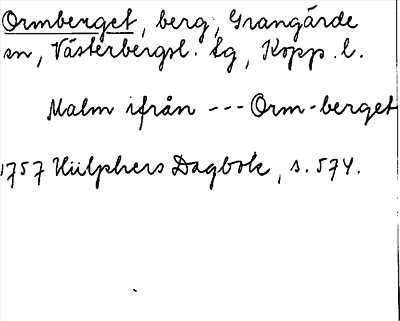 Ormberget, berg, Grangärde
sn, Västerbergsl. fg, Kopp. l.
Malm ifrån --- Orm-berget
1757 Hülphers Dagbok, s. 574.